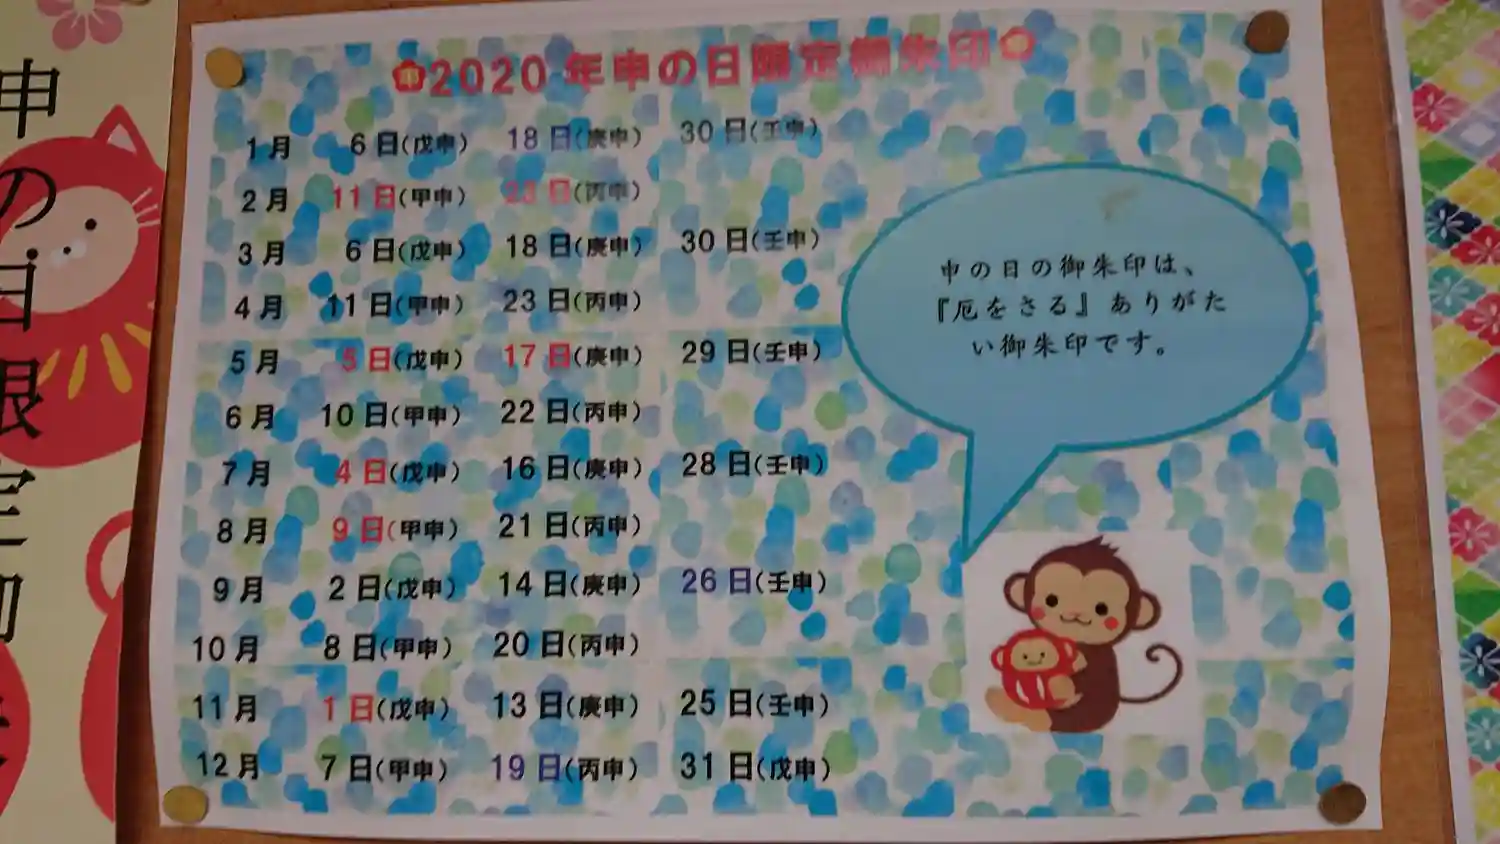 2020年申の日限定御朱印
1月 6日(戊申) 18日(庚申) 30日(壬申)
2月 11日(甲申) 23日(丙申)
3月 6日(戊申) 18日(庚申) 30日(壬申)
4月 11日(甲申) 23日(丙申)
5月 5日(戊申) 17日(庚申) 29日(壬申)
6月 10日(甲申) 22日(丙申)
7月 4日(戊申) 16日(庚申) 28日(壬申)
8月 9日(甲申) 21日(丙申)
9月 2日(戊申) 14日(庚申) 26日(壬申)
10月 8日(甲申) 20日(丙申)
11月 1日(戊申) 13日(庚申) 25日(壬申)
12月 7日(甲申) 19日(丙申) 31日(戊申)
申の日の御朱印は、
『厄をさる』ありがた
い御朱印です。
申の日限定